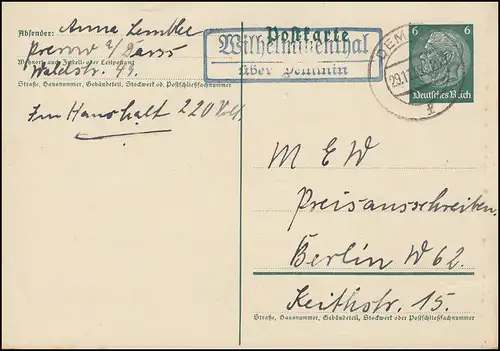 Absender: Anna Lemtke
Prerow a/Darss
Wohnort, auch Zustell- oder Leitpostamt
Waldstr. 49.
Straße, Hausnummer, Gebäudeteil, Stockwerk od. Postschließfachnummer
Im Haushalt 220 Volt.
Postkarte
Wilhelminenthal
über Demmin
DEMMIN
29.11.
6 6
Deutsches Reich
M E W
Preisausschreiben.
Berlin W 62.
Keithstr. 15.
Straße, Hausnummer, Gebäudeteil, Stockwerk oder Postschließfachnummer